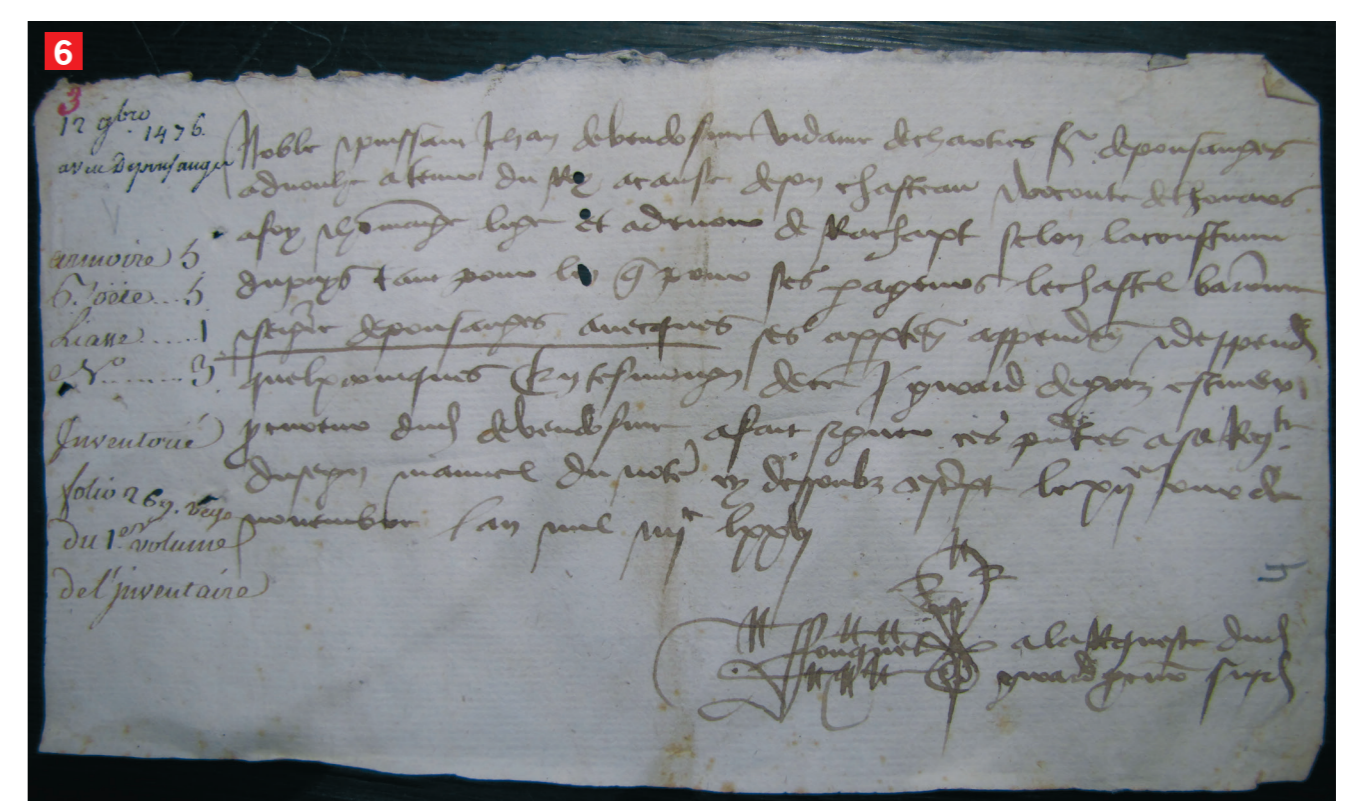 6
3
12 9bre 1476.
aveu De pousauges
armoire 5
Liasse 1
No 3
Inventorié
folio 269. verso
du 1er volume
de l'jnventaire
Noble et puissant Jehan de Vendosme Vidame de Chartres sr de pousauges
advouhe a tenir du Roy a cause de son chasteau et viconte de thouars
a foy et hommage lige et a devoir de Rachapt selon la coustume
du pays tant pour luy q pour ses parageurs le chastel baronnie
et seigrie de pousauges avecques ses apptes appenden et deppend
quelxconques En tesmoing de ce
procureur dud de Vendosme a fait signer ces pntes a sa Reqte
du seing manuel du notre cy dessoubz escript le xije jour de
novembre l an mil iiijc lxxvj
Fouquet a la Requeste dud
procur susd